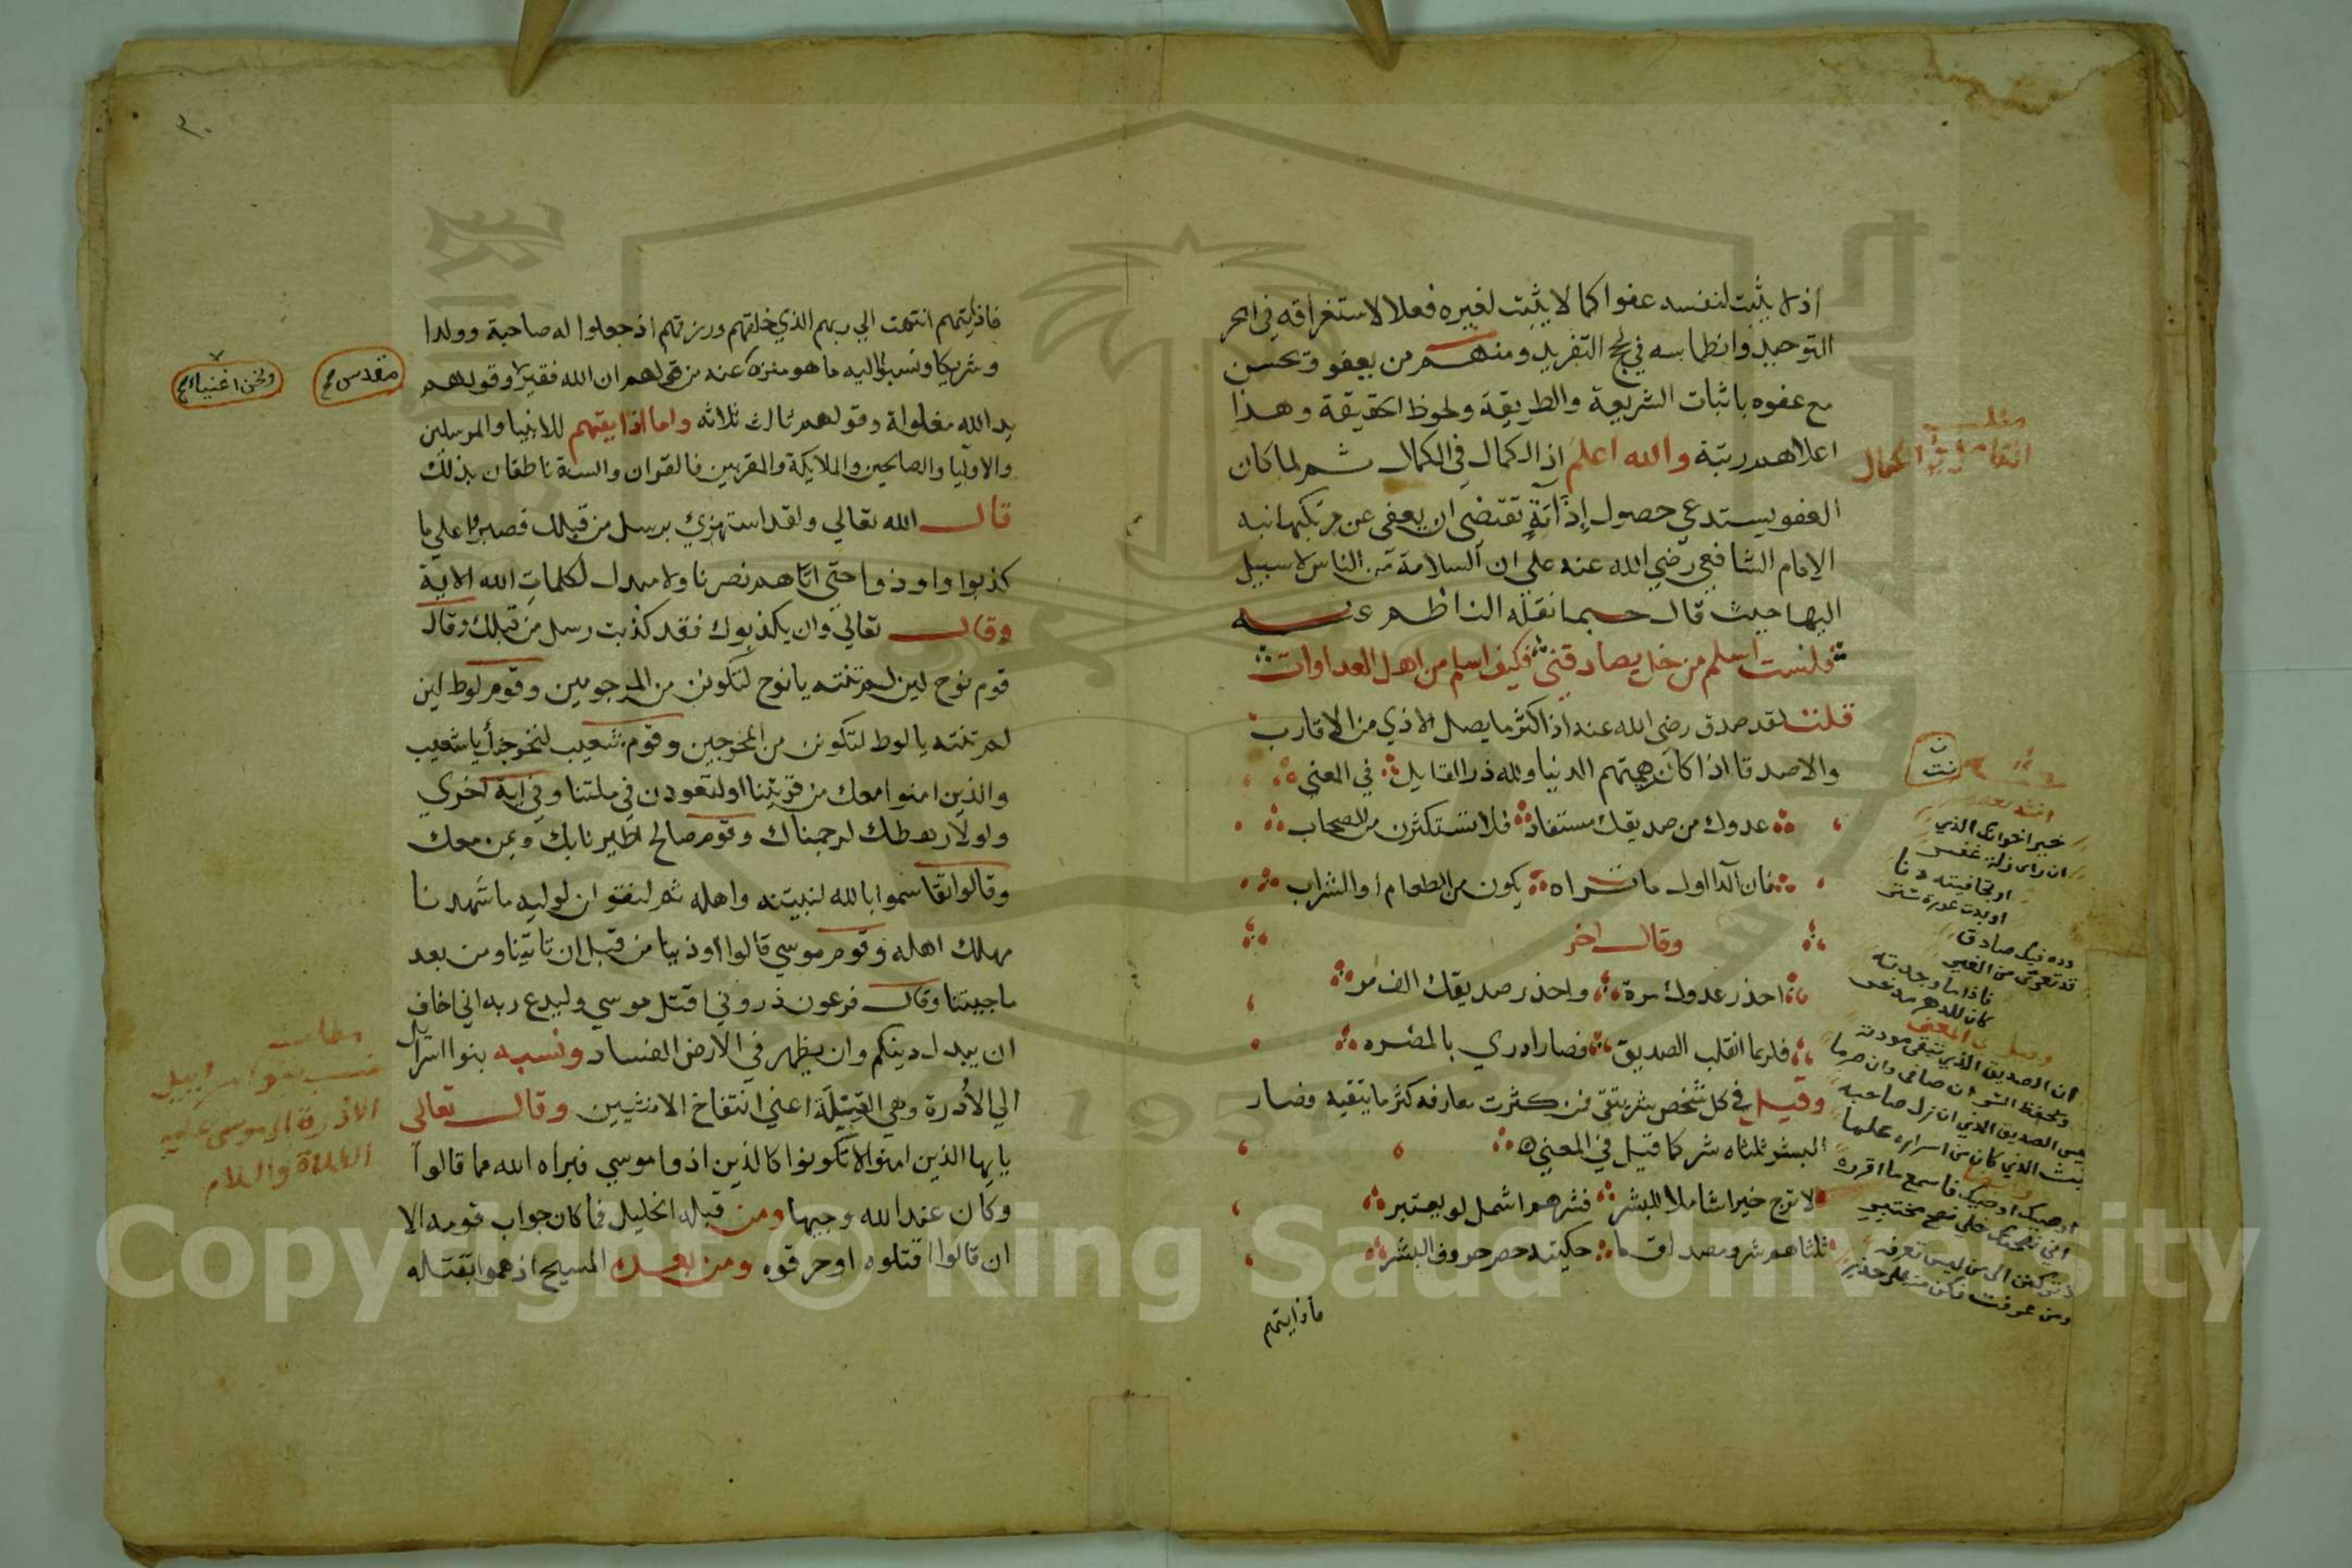 اذ لا يثبت لنفسه عفوا كما لا يثبت لغيره فعلا لاستغراقه في ابحر
التوحيد وانطماسه في لجج التفريد ومنهم من يعفو ويحسن
مع عفوه باثبات الشريعة والطريقة ولحوظ الحقيقة وهذا
اعلاهم رتبة والله اعلم اذ الكمال في الكمال ثم لما كان
العفو يستدعي حصول إذاية تقتضي ان يعفى عن مرتكبها نبه
الامام الشافعي رضي الله عنه علي ان السلامة من الناس لا سبيل
اليها حيث قال حسبما نقله الناظم عنه
فلست اسلم من خل يصادقني فكيف اسلم من اهل العداوات
قلت لقد صدق رضي الله عنه اذ اكثر ما يصل الاذي من الاقارب
والاصدقا اذا كان همتهم الدنيا ولله در القايل في المعني
عدوك من صديقك مستفاد فلا تستكثرن من الصحاب
فان الدا اول ما تراه يكون من الطعام أو الشراب
وقال اخر
احذر عدوك مرة واحذر صديقك الف مر
فلربما انقلب الصديق فصار ادري بالمضره
وقيل في كل شخص شر يتقى فمن كثرت معارفه كثر ما يتقيه وصار
البشر ثلثاه شر كما قيل في المعني
لا ترج خيرا شاملا للبشر فشرهم اشمل لو يعتبر
ثلثاهم شر ومصداق ما حكيته حصر حروف البشر
فأذايتهم
مطلب
خير اخوانك الذي
ان راى زلة غفر
او بدت عورة ستر
وده فيك صادق
فاذا ما وجدته
ان الصديق الذي تبقى مودته
ويحفظ السر ان صافى وان صرما
ليس الصديق الذي ان زل صاحبه
بث الذي كان من اسراره علما
اوصيك اوصيك فاسمع ما اقرره
لا تركنن الى من ليس تعرفه
ومن عرفت فكن منه على حذر
٣٠
فاذايتهم انتهت الي ربهم الذي خلقهم ورزقهم اذ جعلوا له صاحبة وولدا
وشريكا ونسبوا اليه ما هو منزه عنه من قولهم ان الله فقير وقولهم
يد الله مغلولة وقولهم ثالث ثلاثه واما اذايتهم للانبيا والمرسلين
والاوليا والصالحين والملايكة والمقربين فالقران والسنة ناطقان بذلك
قال الله تعالي ولقد استهزئ برسل من قبلك فصبروا علي ما
كذبوا واوذوا حتي اتاهم نصرنا ولا مبدل لكلمات الله الاية
وقال تعالي وان يكذبوك فقد كذبت رسل من قبلك وقال
قوم نوح لين لم تنته يا نوح لتكونن من المرجومين وقوم لوط لين
لم تنته يا لوط لتكونن من المخرجين وقوم شعيب لنخرجنك يا شعيب
والذين امنوا معك من قريتنا او لتعودن في ملتنا وفي اية اخري
ولولا رهطك لرجمناك وقوم صالح اطيرنا بك وبمن معك
وقالوا تقاسموا بالله لنبيتنه واهله ثم لنقولن لوليه ما شهدنا
مهلك اهله وقوم موسي قالوا أوذينا من قبل ان تاتينا ومن بعد
ما جيتنا وقال فرعون ذروني اقتل موسي وليدع ربه اني اخاف
ان يبدل دينكم وان يظهر في الارض الفساد ونسبه بنوا اسرايل
الي الأدرة وهي القيلة اعني انتفاخ الانثيين وقال تعالى
يايها الذين امنوا لا تكونوا كالذين اذوا موسي فبراه الله مما قالوا
وكان عند الله وجيها ومن قبله الخليل فما كان جواب قومه الا
ان قالوا اقتلوه او حرقوه ومن بعده المسيح اذ هموا بقتله
مقدس صح
ونحن اغنياء صح
مطلب
الادرة الى موسى عليه
الصلاة والسلام
Copyright © King Saud University
1957